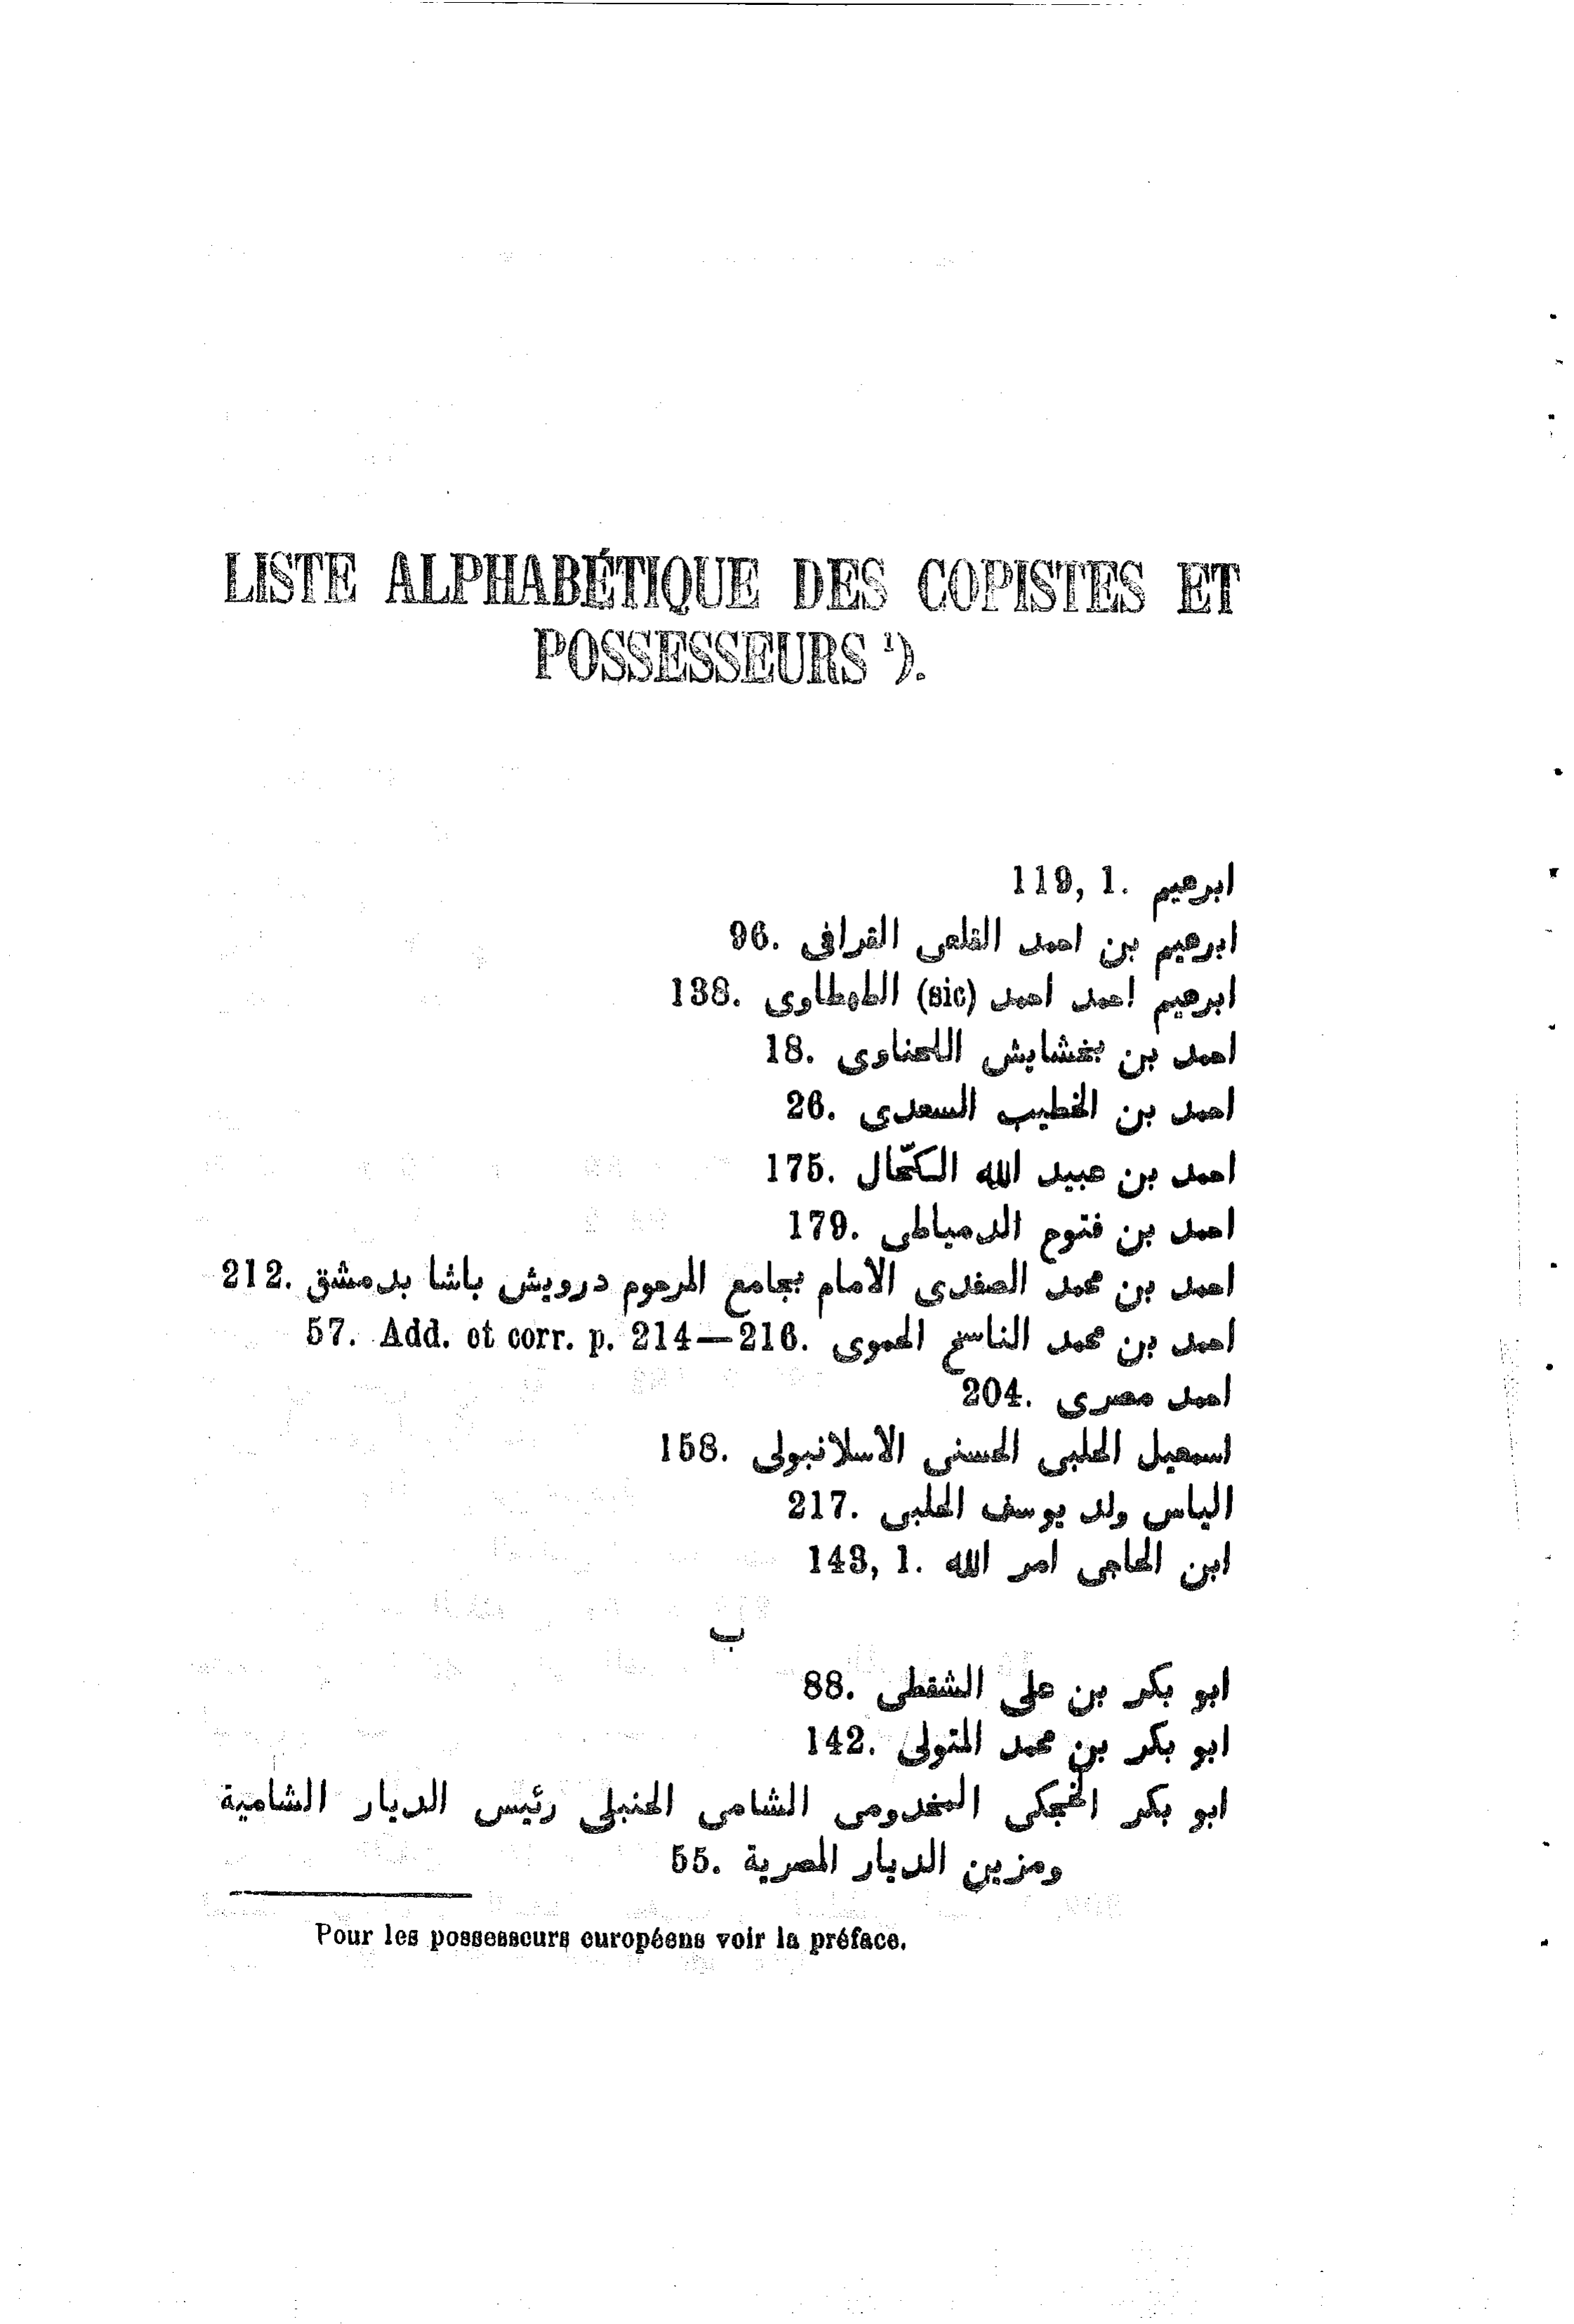 LISTE ALPHABÉTIQUE DES COPISTES ET
POSSESSEURS ¹).
ابرهيم 119, 1.
ابرهيم بن احمد القلعى القرافى 96.
ابرهيم احمد احمد (sic) الطهطاوى 138.
احمد بن بخشايش اللحناوى 18.
احمد بن الخطيب السعدى 26.
احمد بن عبيد الله الكحّال 175.
احمد بن فتوح الدمياطى 179.
احمد بن محمد الصفدى الامام بجامع المرحوم درويش باشا بدمشق 212.
احمد بن محمد الناسخ الحموى 57. Add. et corr. p. 214—216.
احمد مصرى 204.
اسمعيل الحلبى الحسنى الاسلانبولى 158.
الياس ولد يوسف الحلبى 217.
ابن الحاجى امر الله 143, 1.
ب
ابو بكر بن على الشقطى 88.
ابو بكر بن محمد المتولى 142.
ابو بكر المخدومى الشامى الحنبلى رئيس الديار الشامية
ومزين الديار المصرية 55.
Pour les possesseurs européens voir la préface.